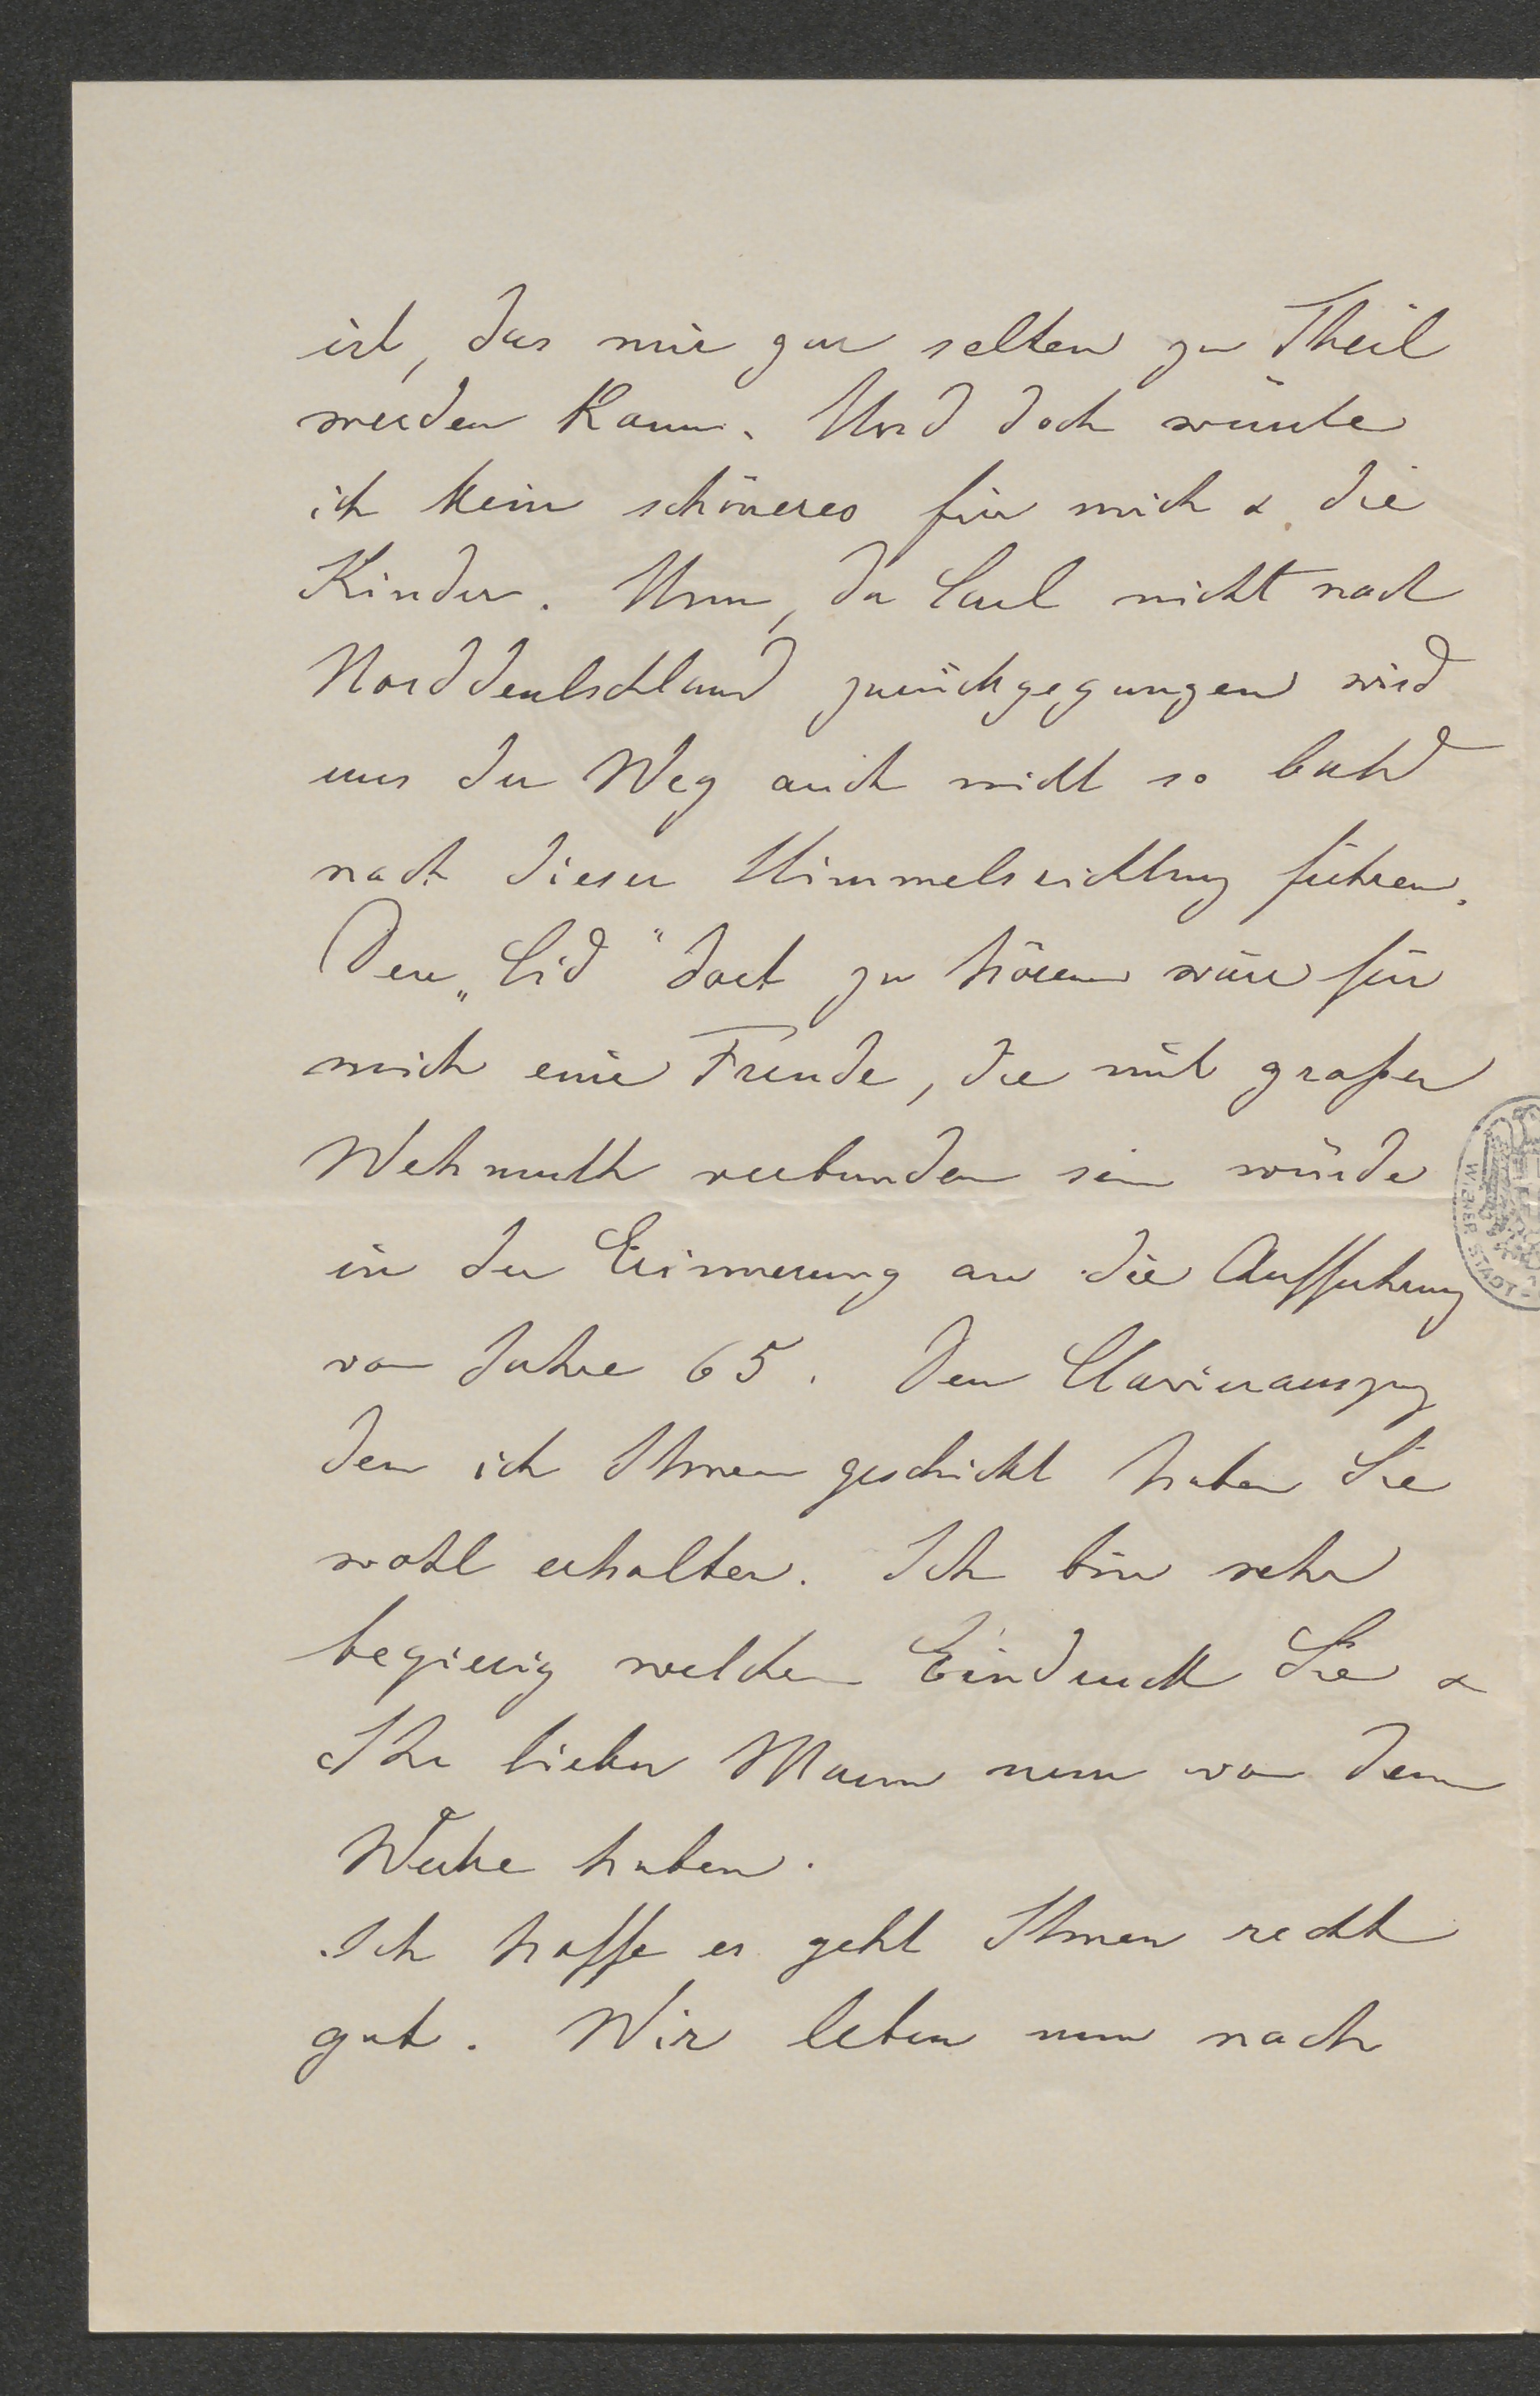 ist, das mir gar selten zu Theil
werden kann. Und doch wüßte
ich kein schöneres für mich & die
Kinder. Nun, da Carl nicht nach
Norddeutschland zurückgegangen wird
uns der Weg auch nicht so bald
nach dieser Himmelsrichtung führen.
Den „Cid“ dort zu hören wäre für
mich eine Freude, die mit großer
Wehmuth verbunden sein würde
in der Erinnerung an die Aufführung
vom Jahre 65. Den Clavierauszug
den ich Ihnen geschickt haben Sie
wohl erhalten. Ich bin sehr
begierig welchen Eindruck Sie &
Ihr lieber Mann nun von dem
Werke haben.
Ich hoffe es geht Ihnen recht
gut. Wir leben nun nach
WIENER STADT-